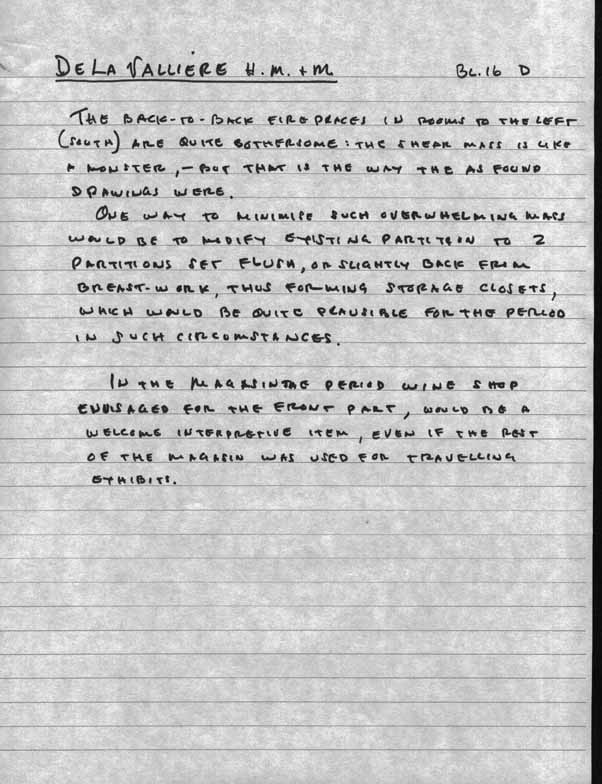 DE LA VALLIÈRE H.M. + M. BL.16 D
THE BACK-TO-BACK FIREPLACES IN ROOMS TO THE LEFT
(SOUTH) ARE QUITE BOTHERSOME: THE SHEAR MASS IS LIKE
A MONSTER, - BUT THAT IS THE WAY THE AS FOUND
DRAWINGS WERE.
ONE WAY TO MINIMISE SUCH OVERWHELMING MASS
WOULD BE TO MODIFY EXISTING PARTITION TO 2
PARTITIONS SET FLUSH, OR SLIGHTLY BACK FROM
BREAST-WORK, THUS FORMING STORAGE CLOSETS,
WHICH WOULD BE QUITE PLAUSIBLE FOR THE PERIOD
IN SUCH CIRCUMSTANCES.
IN THE MAGASIN THE PERIOD WINE SHOP
ENVISAGED FOR THE FRONT PART, WOULD BE A
WELCOME INTERPRETIVE ITEM, EVEN IF THE REST
OF THE MAGASIN WAS USED FOR TRAVELLING
EXHIBITS.